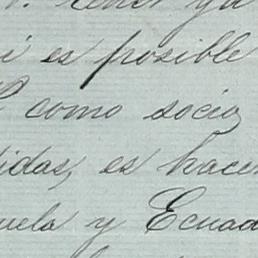 ya
i es posible
como socio
idas, es hacer
uela y Ecuad